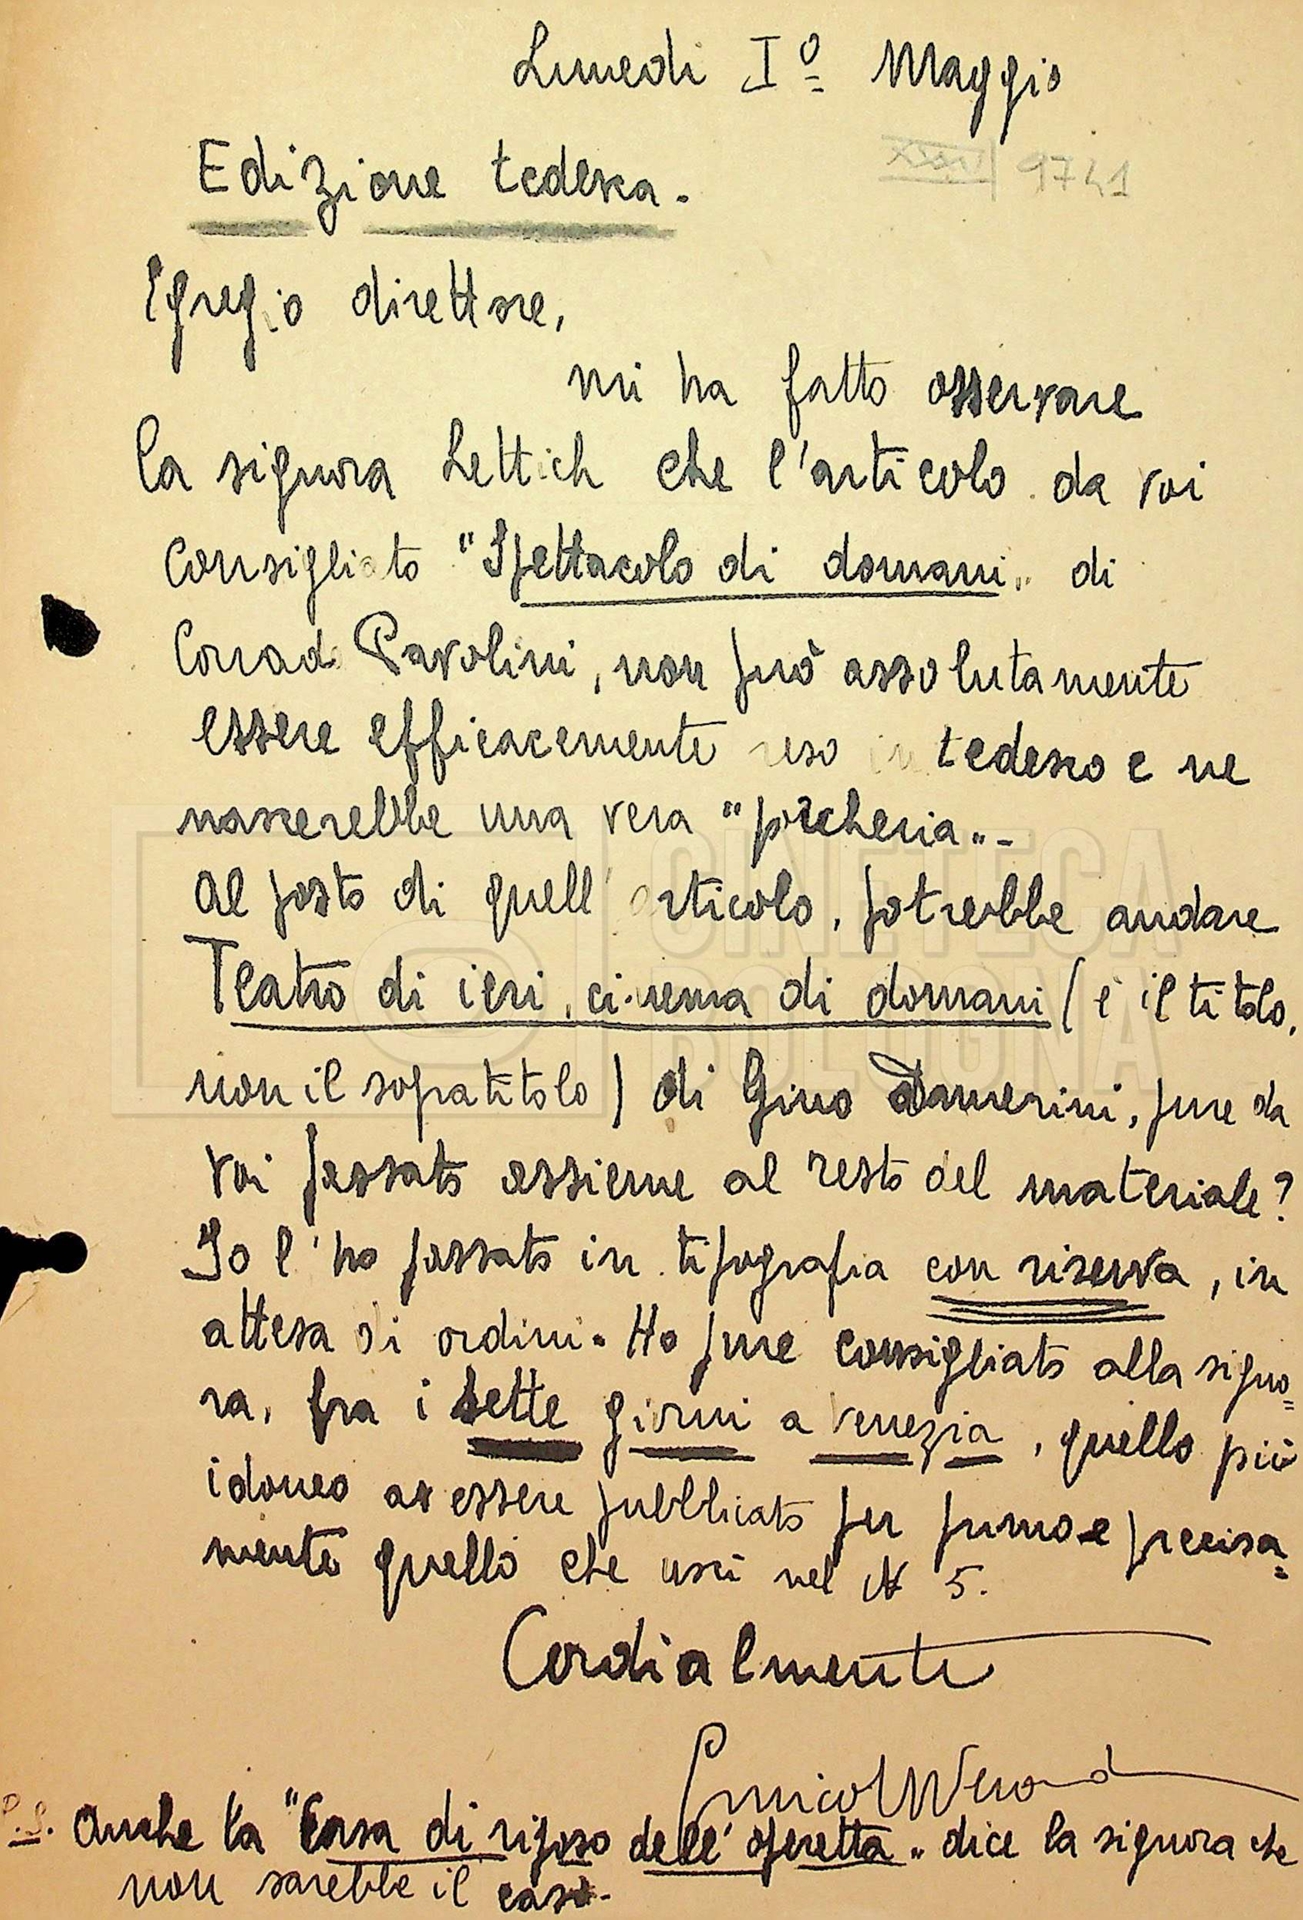 Lunedi I° Maggio
XXXII 9741
Edizione tedesca.
Egregio direttore,
mi ha fatto osservare
la signora Lettich che l'articolo da voi
consigliato "Spettacolo di domani" di
Corrado Pavolini, non può assolutamente
essere efficacemente reso in tedesco e ne
nascerebbe una vera "porcheria".-
Al posto di quell'articolo, potrebbe andare
Teatro di ieri, cinema di domani (è il titolo,
non il sopratitolo) di Gino Damerini, pure da
voi passato assieme al resto del materiale?
Io l'ho passato in tipografia con riserva, in
attesa di ordini. Ho pure consigliato alla signo=
ra, fra i sette giorni a Venezia, quello più
idoneo ad essere pubblicato per primo e precisa=
mente quello che uscì nel N 5.
Cordialmente
P.S. Anche la "Casa di riposo dell'operetta" dice la signora che
non sarebbe il caso.-
CINETECA
BOLOGNA